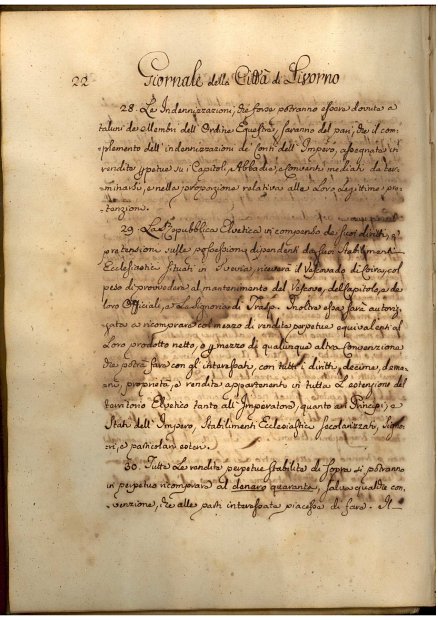 22 Giornale della Città di Livorno
28. Le Indennizzazioni, che forse potranno essere dovute a
taluni de Membri dell'Ordine Equestre, saranno del pari, che il com-
plemento dell'indennizzazioni de Conti dell'Impero, assegnate in
rendite perpetue su i Capitoli, Abbadie, e Conventi mediati da ter-
minarsi, e nella proporzione relativa alle Loro Legittime pre-
tenzioni.
29. La Repubblica Elvetica in compenso de suoi diritti, e
pretensioni sulle possessioni dipendenti da suoi Stabilimenti
Ecclesiastici situati in Svevia, riceverà il Vescovado di Coira, col
peso di provvedere al mantenimento del Vescovo, del Capitolo, e de
loro Offiziali, e La Signoria di Trasp. Inoltre essa sarà autoriz-
zata a ricomprare col mezzo di rendite perpetue equivalenti al
Loro prodotto netto, o p mezzo di qualunque altra Convenzione
che potrà fare con gli interessati, con tutti i diritti, decime, dema-
ni, proprietà, e rendite appartenenti in tutta L'estensione del
territorio Elvetico tanto all'Imperatore, quanto ai Principi, e
Stati dell'Impero, Stabilimenti Ecclesiastici secolarizzati, Signo-
ri, e particolari esteri.
30. Tutte Le rendite perpetue stabilite di sopra si potranno
in perpetuo ricomprare al denaro quaranta, salva qualche con-
venzione, che alle parti interessate piacesse di fare. Il